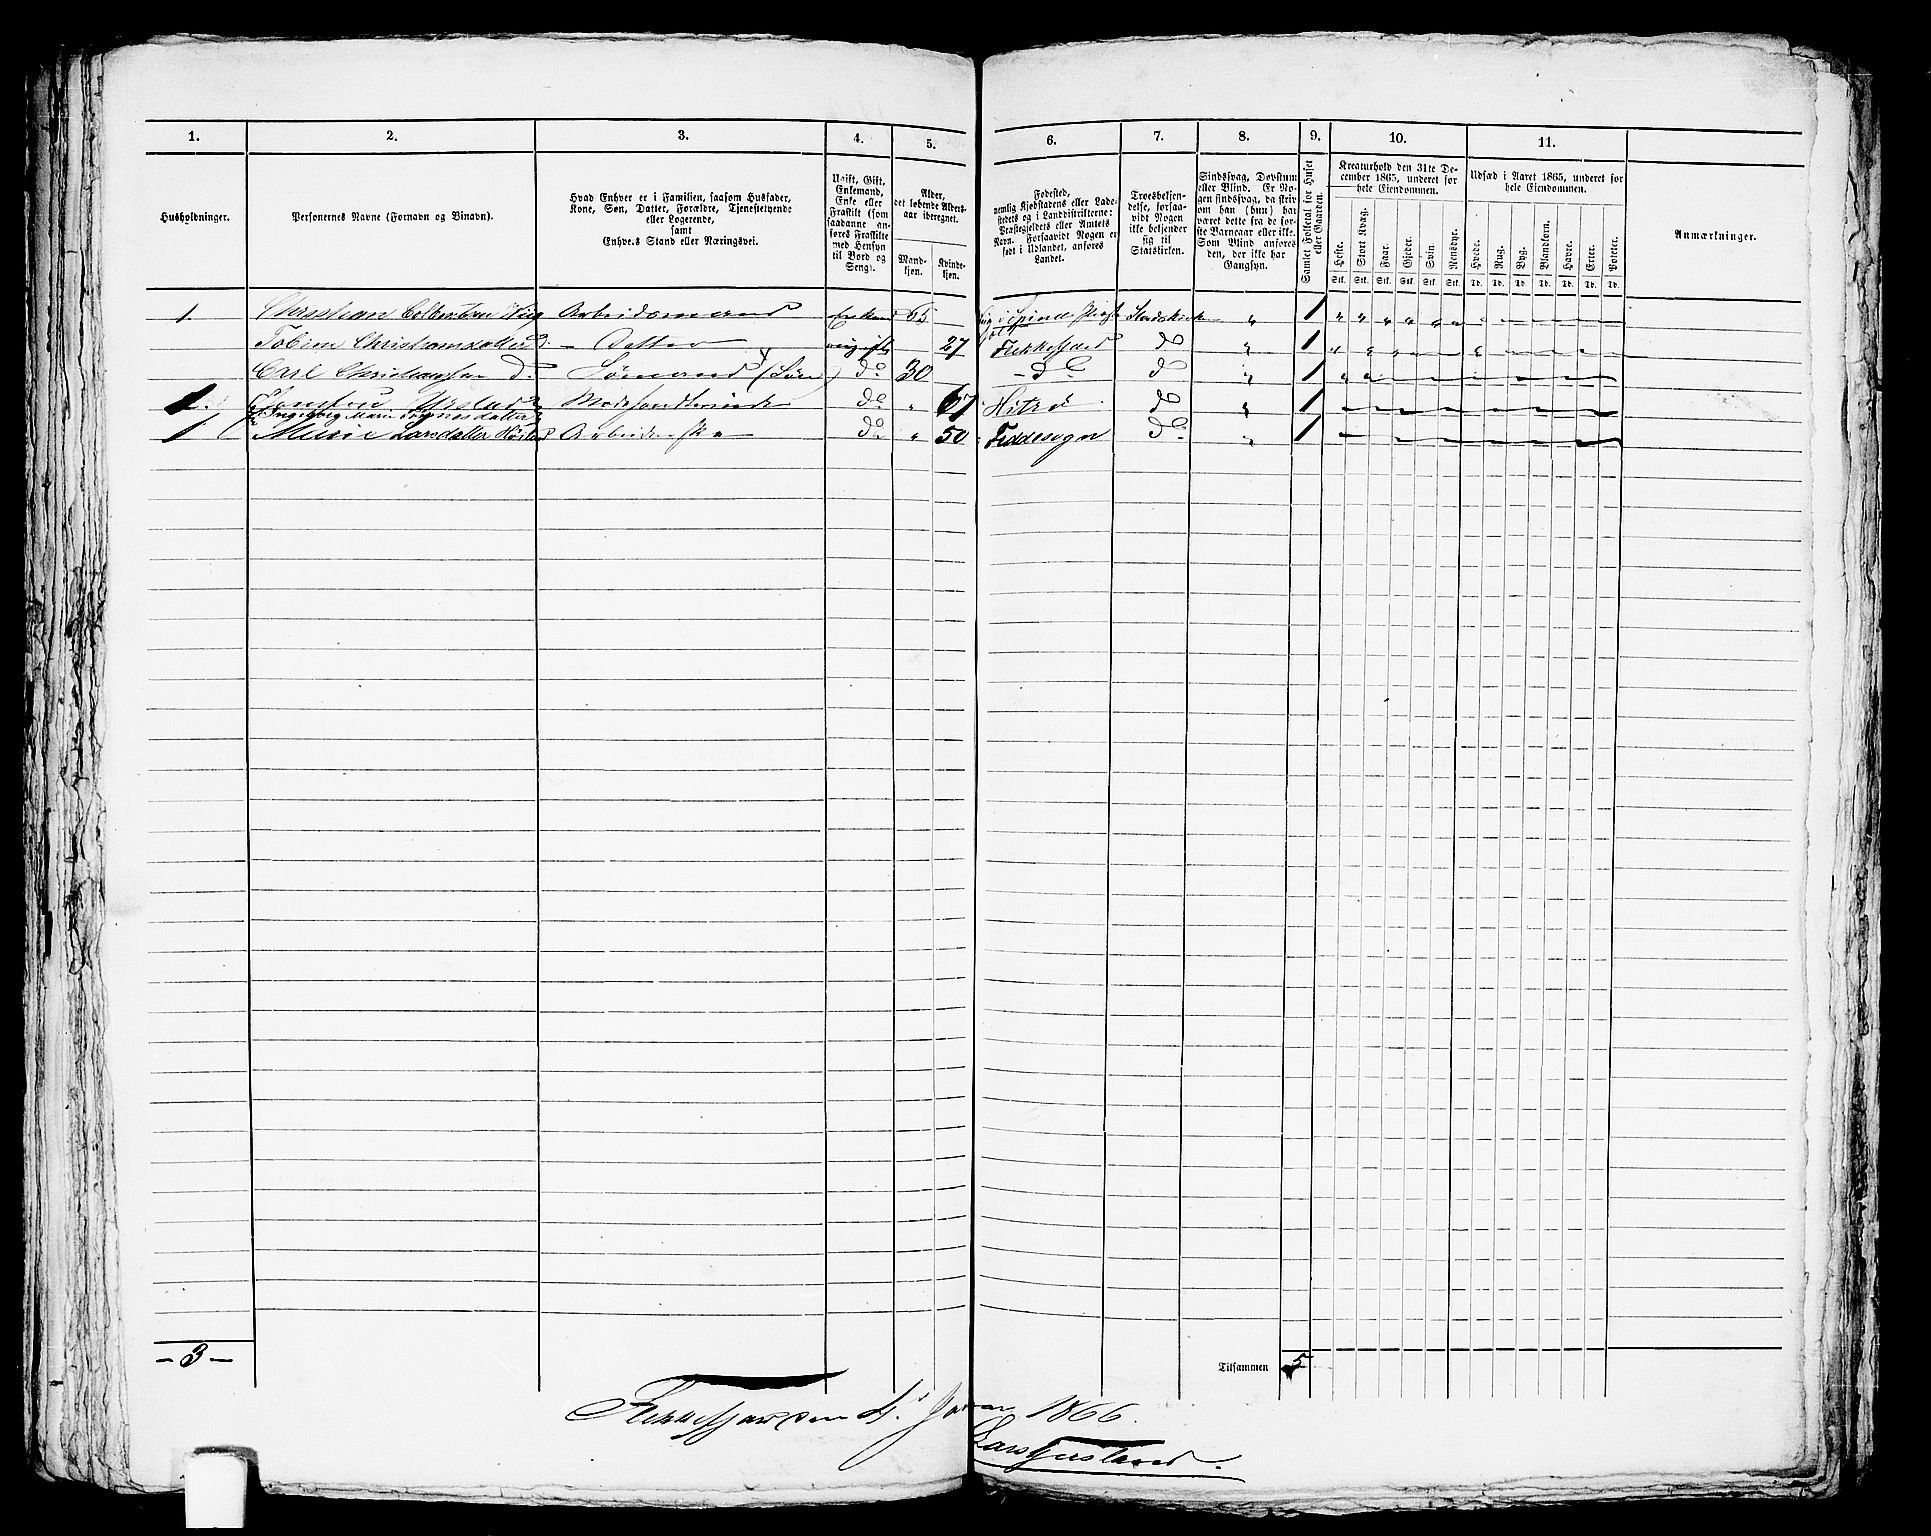 1. 2. 3. 4. 5. 6. 7. 8. 9. 10. 11.
Husholdninger.
Personernes Navne (Fornavn og Binavn).
Hvad Enhver er i Familien, saasom Husfader,
Kone, Søn, Datter, Forældre, Tjenestetyende
eller Logerende,
samt
Enhvers Stand eller Næringsvei.
Ugift, Gift,
Enkemand,
Enke eller
Fraskilt (som
saadanne an-
føres Fraskilte
med Hensyn
til Bord og
Seng).
Alder,
det løbende Alders-
aar iberegnet.
Mand-
kjøn.
Kvinde-
kjøn.
Fødested,
nemlig Kjøbstadens eller Lade-
stedets og i Landdistrikterne:
Præstegjeldets eller Amtets
Navn. Forsaavidt Nogen er
født i Udlandet, anføres
Landet.
Troesbekjen-
delse, forsaa-
vidt Nogen
ikke bekjender
sig til
Statskirken.
Sindssvag, Døvstum
eller Blind. Er No-
gen sindssvag, da skriv
om han (hun) har
været dette fra de før-
ste Barneaar eller ikke.
Som Blind anføres
den, der ikke har
Gangsyn.
Samlet Folketal for Huset
eller Gaarden.
Kreaturhold den 31te De-
cember 1865, underet for
hele Eiendommen.
Heste. Stort Kvæg. Faar. Gjeder. Svin Rensdyr.
Stk. Stk. Stk. Stk. Stk. Stk.
Udsæd i Aaret 1865, underet for
hele Eiendommen.
Hvede. Rug. Byg. Blandkorn. Havre. Erter. Poteter.
Td. Td. Td. Td. Td. Td. Td.
Anmærkninger.
1. Christian Arbeidsmand 65 Statskirken " 1
Christiansdatter do. — Datter ugift 27 Flekkefjord do " 1
Carl Christiansen do. Sømand (Søn) do 30 — do do " 1
1. Modehandlerinde do " 67 Hitrø do " 1
Ingeborg Marie
1 Larsdatter do " 50 Feddesogn do " 1
— 3 —
Tilsammen 5
Flekkefjord den 1866.